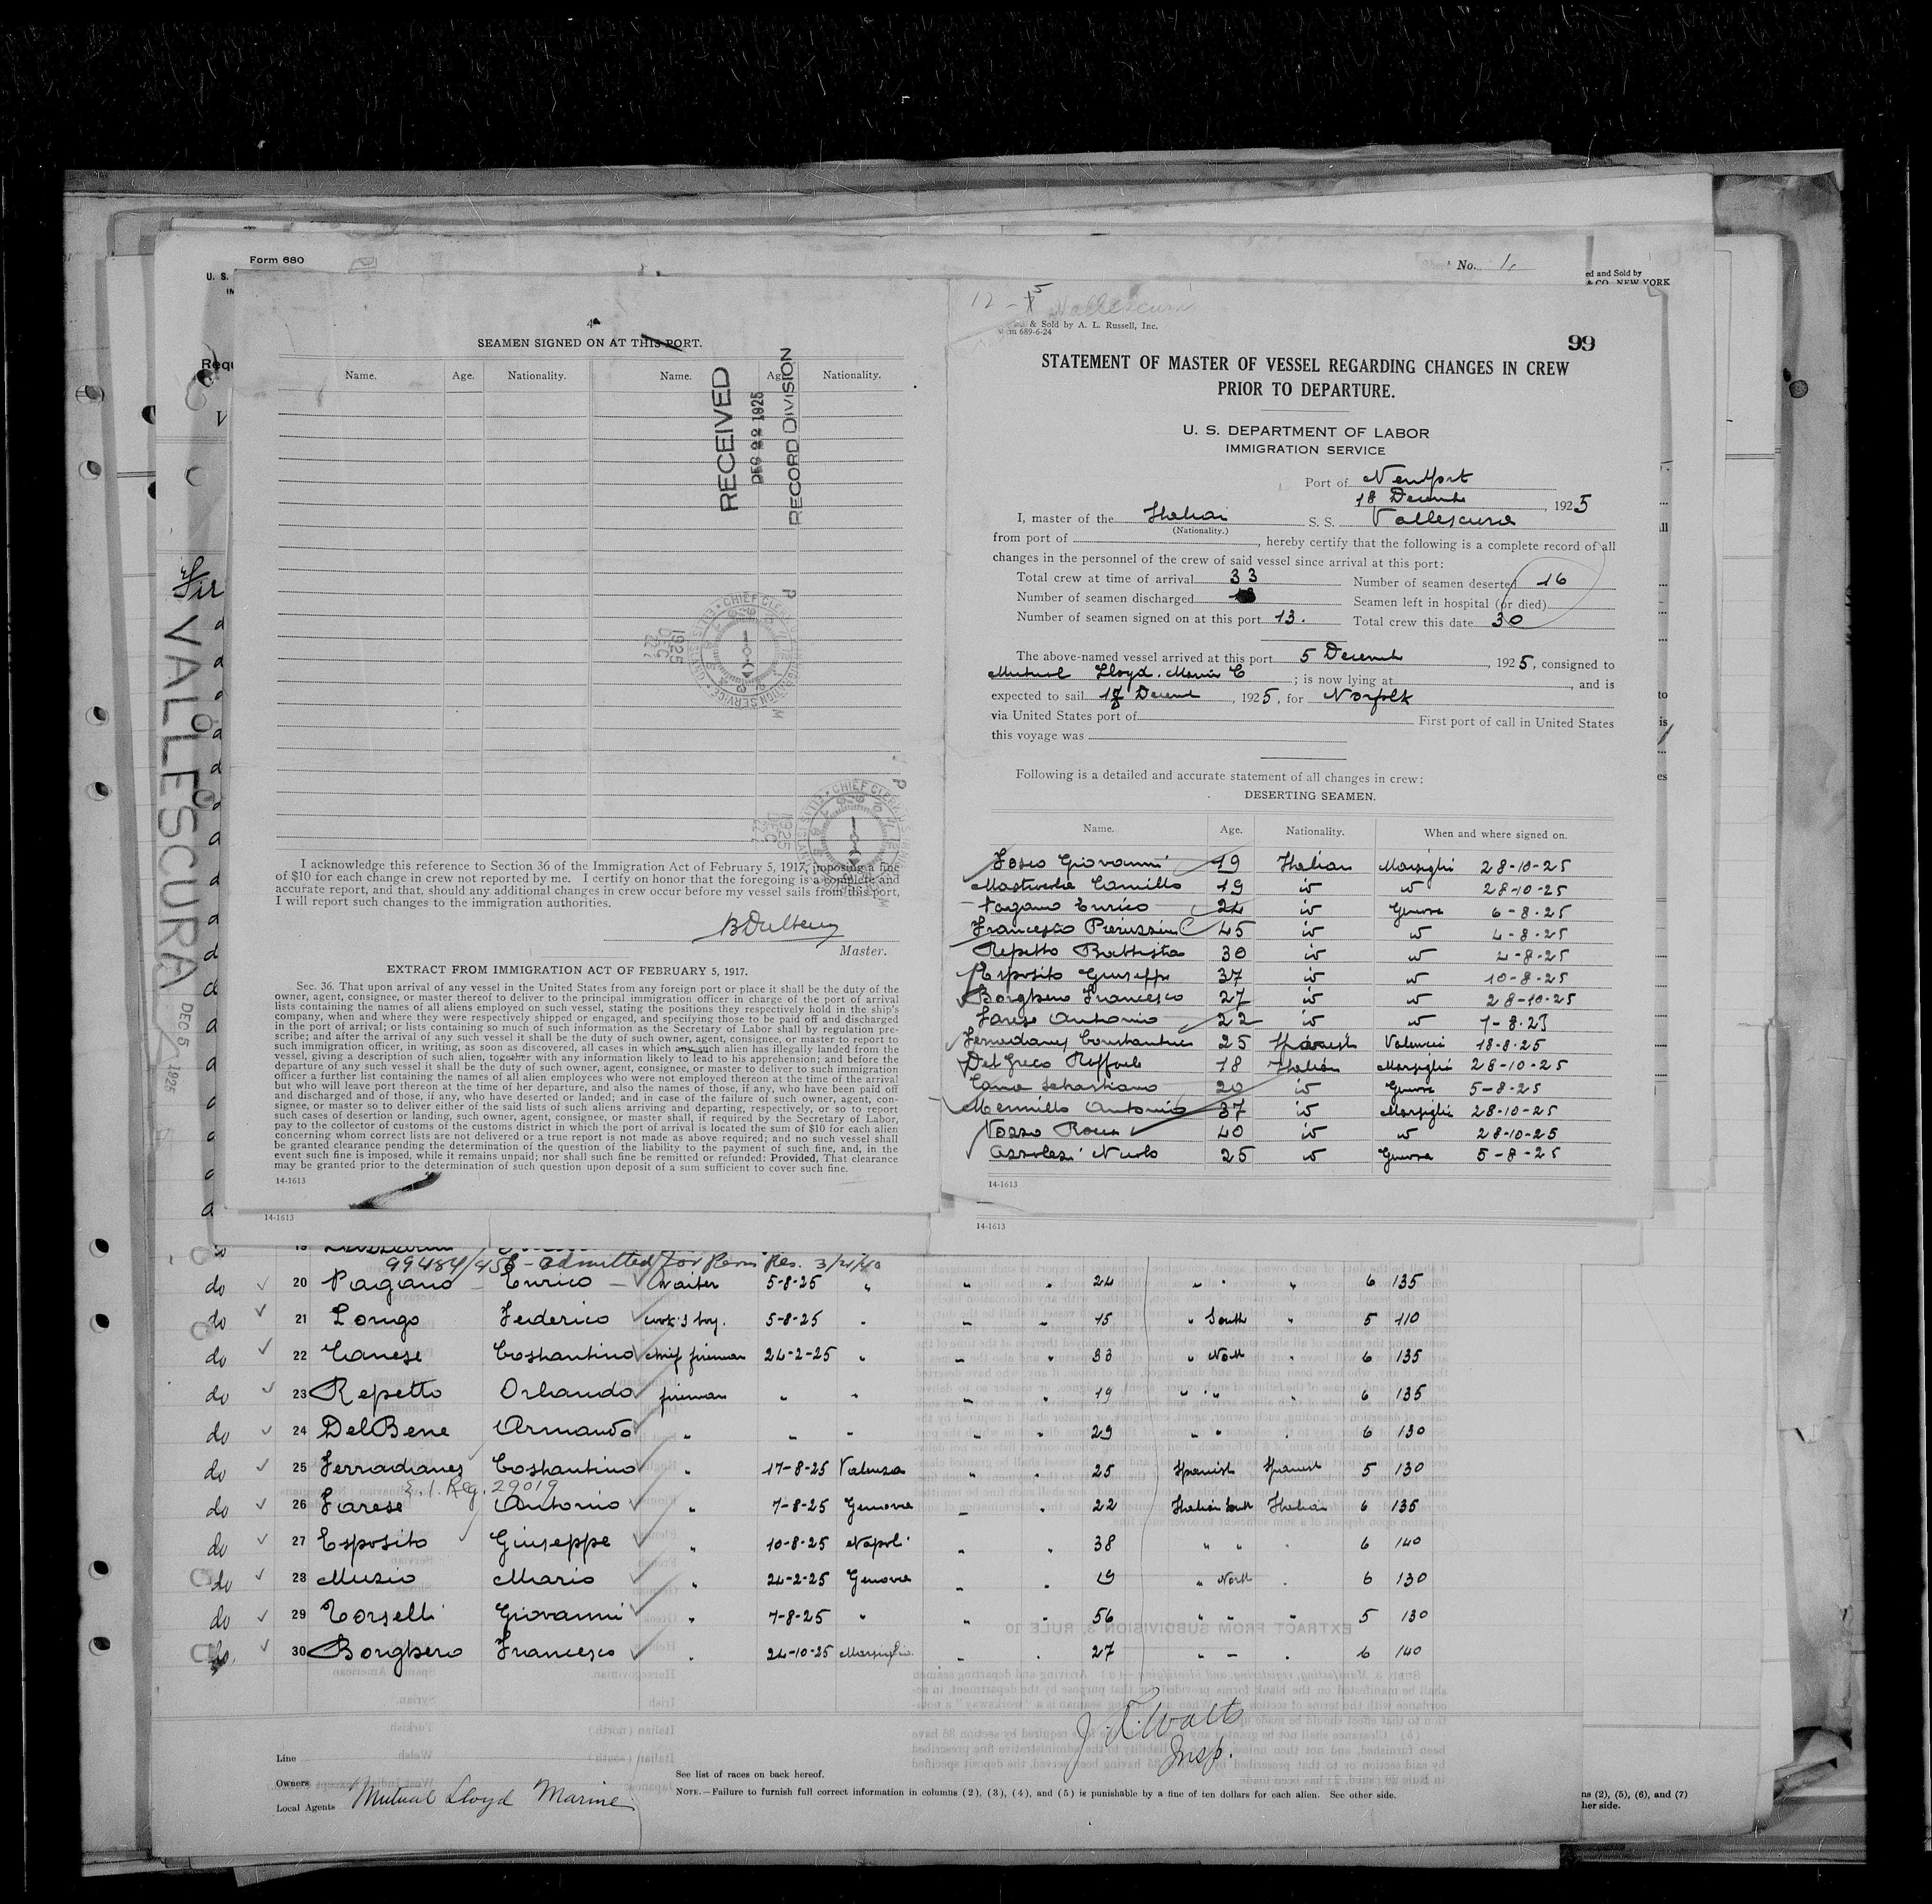 Form 680
No. 1.
U. S.
IM
ed and Sold by
& CO. NEW YORK
Requ
VALLESCURA
DEC 5 1925
4
SEAMEN SIGNED ON AT THIS PORT.
Name. Age. Nationality. Name. Age. Nationality.
RECEIVED
DEC 22 1925
RECORD DIVISION
I acknowledge this reference to Section 36 of the Immigration Act of February 5, 1917, imposing a fine
of $10 for each change in crew not reported by me. I certify on honor that the foregoing is a complete and
accurate report, and that, should any additional changes in crew occur before my vessel sails from this port,
I will report such changes to the immigration authorities.
Master.
EXTRACT FROM IMMIGRATION ACT OF FEBRUARY 5, 1917.
Sec. 36. That upon arrival of any vessel in the United States from any foreign port or place it shall be the duty of the
owner, agent, consignee, or master thereof to deliver to the principal immigration officer in charge of the port of arrival
lists containing the names of all aliens employed on such vessel, stating the positions they respectively hold in the ship's
company, when and where they were respectively shipped or engaged, and specifying those to be paid off and discharged
in the port of arrival; or lists containing so much of such information as the Secretary of Labor shall by regulation pre-
scribe; and after the arrival of any such vessel it shall be the duty of such owner, agent, consignee, or master to report to
such immigration officer, in writing, as soon as discovered, all cases in which any such alien has illegally landed from the
vessel, giving a description of such alien, together with any information likely to lead to his apprehension; and before the
departure of any such vessel it shall be the duty of such owner, agent, consignee, or master to deliver to such immigration
officer a further list containing the names of all alien employees who were not employed thereon at the time of the arrival
but who will leave port thereon at the time of her departure, and also the names of those, if any, who have been paid off
and discharged and of those, if any, who have deserted or landed; and in case of the failure of such owner, agent, con-
signee, or master so to deliver either of the said lists of such aliens arriving and departing, respectively, or so to report
such cases of desertion or landing, such owner, agent, consignee, or master shall, if required by the Secretary of Labor,
pay to the collector of customs of the customs district in which the port of arrival is located the sum of $10 for each alien
concerning whom correct lists are not delivered or a true report is not made as above required; and no such vessel shall
be granted clearance pending the determination of the question of the liability to the payment of such fine, and, in the
event such fine is imposed, while it remains unpaid; nor shall such fine be remitted or refunded: Provided, That clearance
may be granted prior to the determination of such question upon deposit of a sum sufficient to cover such fine.
14-1613
14-1613
12-5 Vallescura
& Sold by A. L. Russell, Inc.
689-6-24
99
STATEMENT OF MASTER OF VESSEL REGARDING CHANGES IN CREW
PRIOR TO DEPARTURE.
U. S. DEPARTMENT OF LABOR
IMMIGRATION SERVICE
Port of
18 Decemb , 1925
I, master of the Italian S. S. Vallescura
(Nationality.)
from port of , hereby certify that the following is a complete record of all
changes in the personnel of the crew of said vessel since arrival at this port:
Total crew at time of arrival 33 Number of seamen deserted 16
Number of seamen discharged Seamen left in hospital (or died)
Number of seamen signed on at this port 13. Total crew this date 30
The above-named vessel arrived at this port 5 Decemb , 1925, consigned to
Mutual Lloyd. ; is now lying at , and is
expected to sail 18 Decemb , 1925, for Norfolk
via United States port of First port of call in United States
this voyage was
Following is a detailed and accurate statement of all changes in crew:
DESERTING SEAMEN.
Name. Age. Nationality. When and where signed on.
Giovanni 19 Italian Marsiglia 28-10-25
Camillo 19 28-10-25
Pagano Enrico 24 Genova 6-8-25
Francesco 45 4-8-25
Repetto Battista 30 4-8-25
Esposito Giuseppe 37 10-8-25
Borghero Francesco 27 28-10-25
Farese Antonio 22 7-8-25
Ferradanes Constantino 25 Spanish Valencia 18-8-25
Del Greco Raffaele 18 Italian Marsiglia 28-10-25
Sebastiano 20 Genova 5-8-25
Antonio 37 Marsiglia 28-10-25
Rocco 40 28-10-25
25 Genova 5-8-25
14-1613
14-1613
19
99484/456 - admitted for Perm Res. 3/21/40
do 20 Pagano Enrico waiter 5-8-25 " " " 24 " " " 6 135
do 21 Longo Federico cook's boy. 5-8-25 " " " 15 " South " 5 110
do 22 Canese Costantino chief fireman 24-2-25 " " " 33 " North " 6 135
do 23 Repetto Orlando fireman " " " " 19 " " " 6 135
do 24 Del Bene Armando " " " " " 29 " " " 6 130
do 25 Ferradanes Costantino " 17-8-25 Valenza " " 25 Spanish Spanish 5 130
E. I. Reg. 29019
do 26 Farese Antonio " 7-8-25 Genova " " 22 Italian South Italian 6 135
do 27 Esposito Giuseppe " 10-8-25 Napoli " " 38 " " " 6 140
do 28 Muzio Mario " 24-2-25 Genova " " 19 " North " 6 130
do 29 Torselli Giovanni " 7-8-25 " " " 56 " " " 5 130
do 30 Borghero Francesco " 24-10-25 Marsiglia " " 27 " " 6 140
Insp.
Line
Owners
Local Agents Mutual Lloyd Marine
See list of races on back hereof.
NOTE.—Failure to furnish full correct information in columns (2), (3), (4), and (5) is punishable by a fine of ten dollars for each alien. See other side.
ns (2), (5), (6), and (7)
her side.